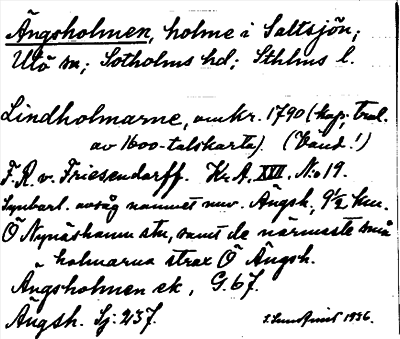 Ängsholmen, holme i Saltsjön;
Utö sn; Sotholms hd; Sthlms l.
Lindholmarne, omkr. 1790 (kop; trol.
av 1600-talskarta). (Känd!)
F. R. v. Friesendorff. Kr. A. XVII. No 19.
Synbarl. avsåg namnet nuv. Ängsh., 9½ km.
Ö Nynäshamn stn, samt de närmaste små
holmarna strax Ö Ängsh.
Ängsholmen ek, G. 67.
Ängsh. Sj: 237.
1936.